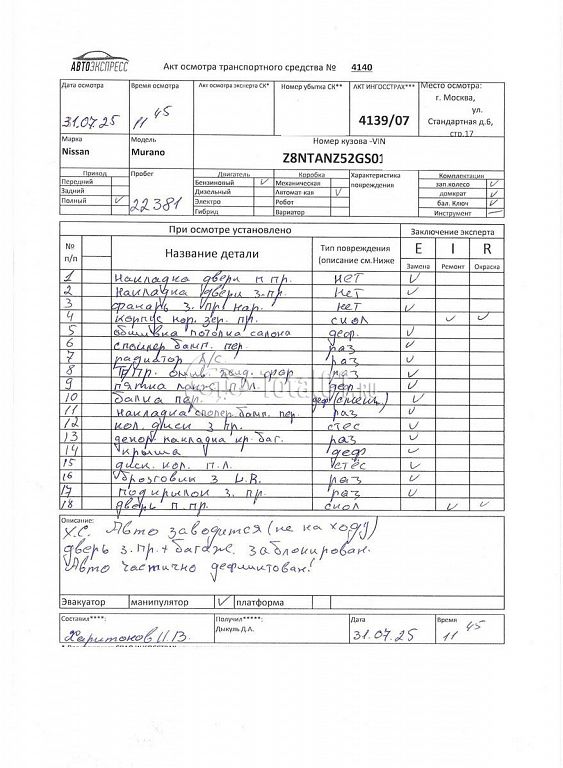 АВТОЭКСПРЕСС
Акт осмотра транспортного средства № 4140
Дата осмотра Время осмотра Акт осмотра эксперта СК* Номер убытка СК** АКТ ИНГОССТРАХ*** Место осмотра:
31.07.25 11 45 4139/07 г. Москва, ул. Стандартная д.6, стр.17
Марка Модель Номер кузова -VIN
Nissan Murano Z8NTANZ52GS01
Привод Пробег Двигатель Коробка Характеристика повреждения Комплектация
Передний Бензиновый ✓ Механическая зап.колесо ✓
Задний 22381 Дизельный Автомат-кая ✓ домкрат ✓
Полный ✓ Электро Робот бал. Ключ ✓
Гибрид Вариатор Инструмент —
При осмотре установлено Заключение эксперта
№ п/п Название детали Тип повреждения (описание см.Ниже E I R
Замена Ремонт Окраска
1 накладка двери п пр. нет ✓
2 накладка двери з.пр. нет ✓
3 фонарь з. пр нар. нет ✓
4 корпус нар. зер. пр. скол ✓ ✓
5 обшивка потолка салона деф. ✓
6 спойлер бамп. пер. раз ✓
7 радиатор А/С. раз ✓
8 фар раз ✓
9 деф ✓
10 балка пер. деф ✓
11 накладка бамп. пер. раз ✓
12 кол. диск з пр. стес ✓
13 декор накладка кр. баг. раз ✓
14 крыша деф ✓
15 диск. кол. п.л. стес ✓
16 брызговик з L.В. раз ✓
17 подкрылок з. пр. раз ✓
18 дверь п.пр. скол ✓ ✓
Описание:
Х.С. Авто заводится (не на ходу)
дверь з.пр. + багаж. заблокирован.
Авто частично
Эвакуатор манипулятор ✓ платформа
Составил****: Получил*****: Дата Время
Харитонов И.В. Дыкуль Д.А. 31.07.25 11 45